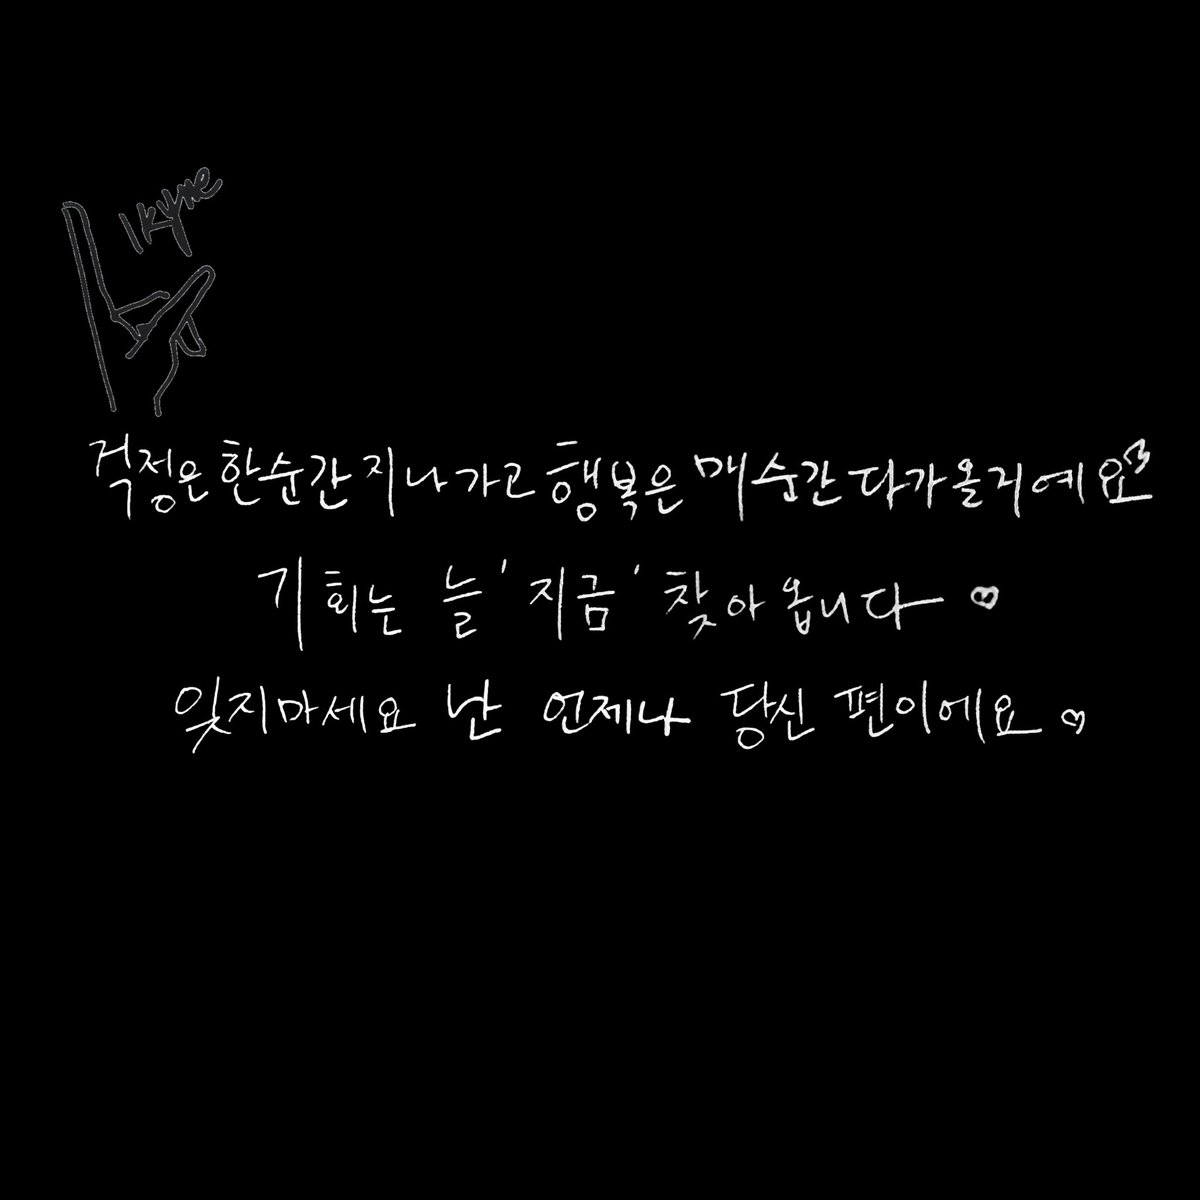 걱정은 한순간 지나가고 행복은 매순간 다가올거예요
기회는 늘 '지금' 찾아옵니다
잊지마세요 난 언제나 당신 편이에요